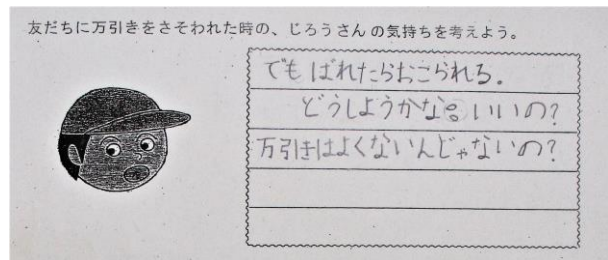 友だちに万引きをさそわれた時の、じろうさんの気持ちを考えよう。
でもばれたらおこられる。
どうしようかな。いいの?
万引きはよくないんじゃないの?